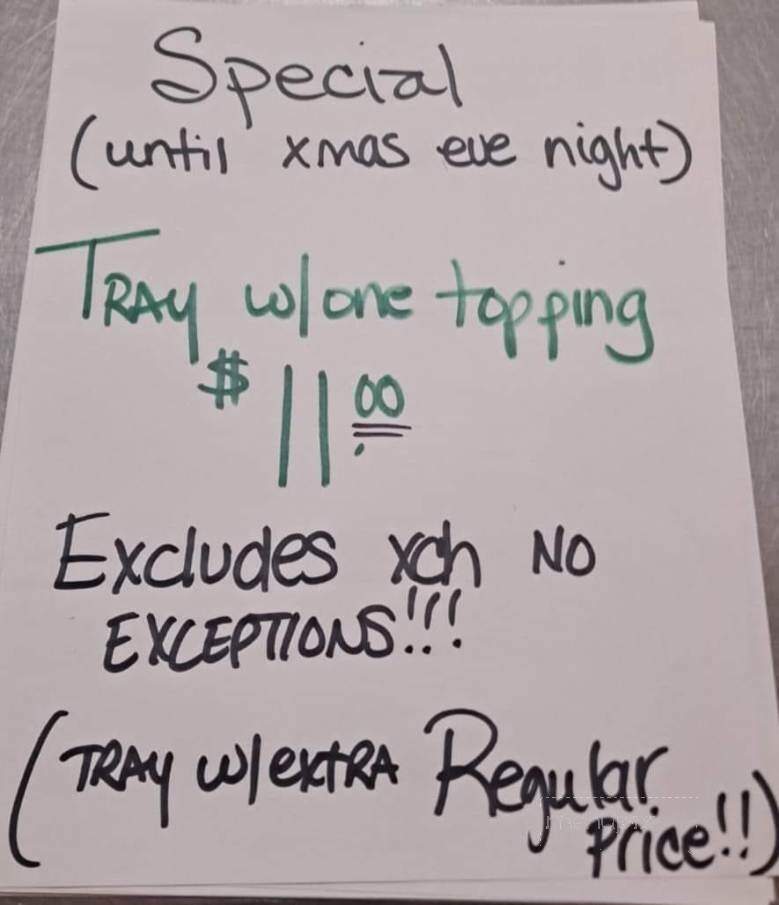 Special
(until xmas eve night)
TRAY w/one topping
$11 00
Excludes xch NO
EXCEPTIONS!!!
(TRAY w/extRA Regular
Price!!)